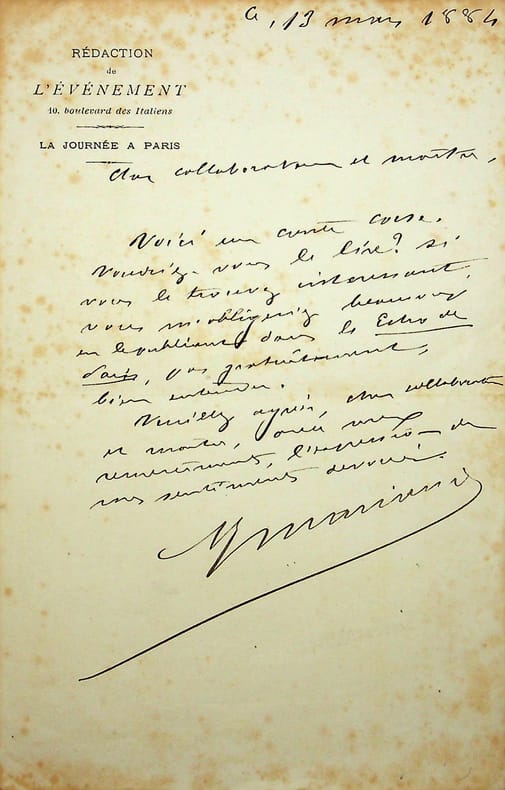 13 mars 1884
RÉDACTION
de
L'ÉVÉNEMENT
10, boulevard des Italiens
LA JOURNÉE A PARIS
Cher collaborateur et maître,
Voici un conte corse.
Voudriez-vous le lire? Si
vous le trouvez intéressant,
vous m'obligeriez beaucoup
en le publiant dans le Echo de
Paris, pas gratuitement,
bien entendu.
Veuillez agréer, cher collaborateur
et maître, avec mes
remerciements, l'expression de
mes sentiments dévoués.